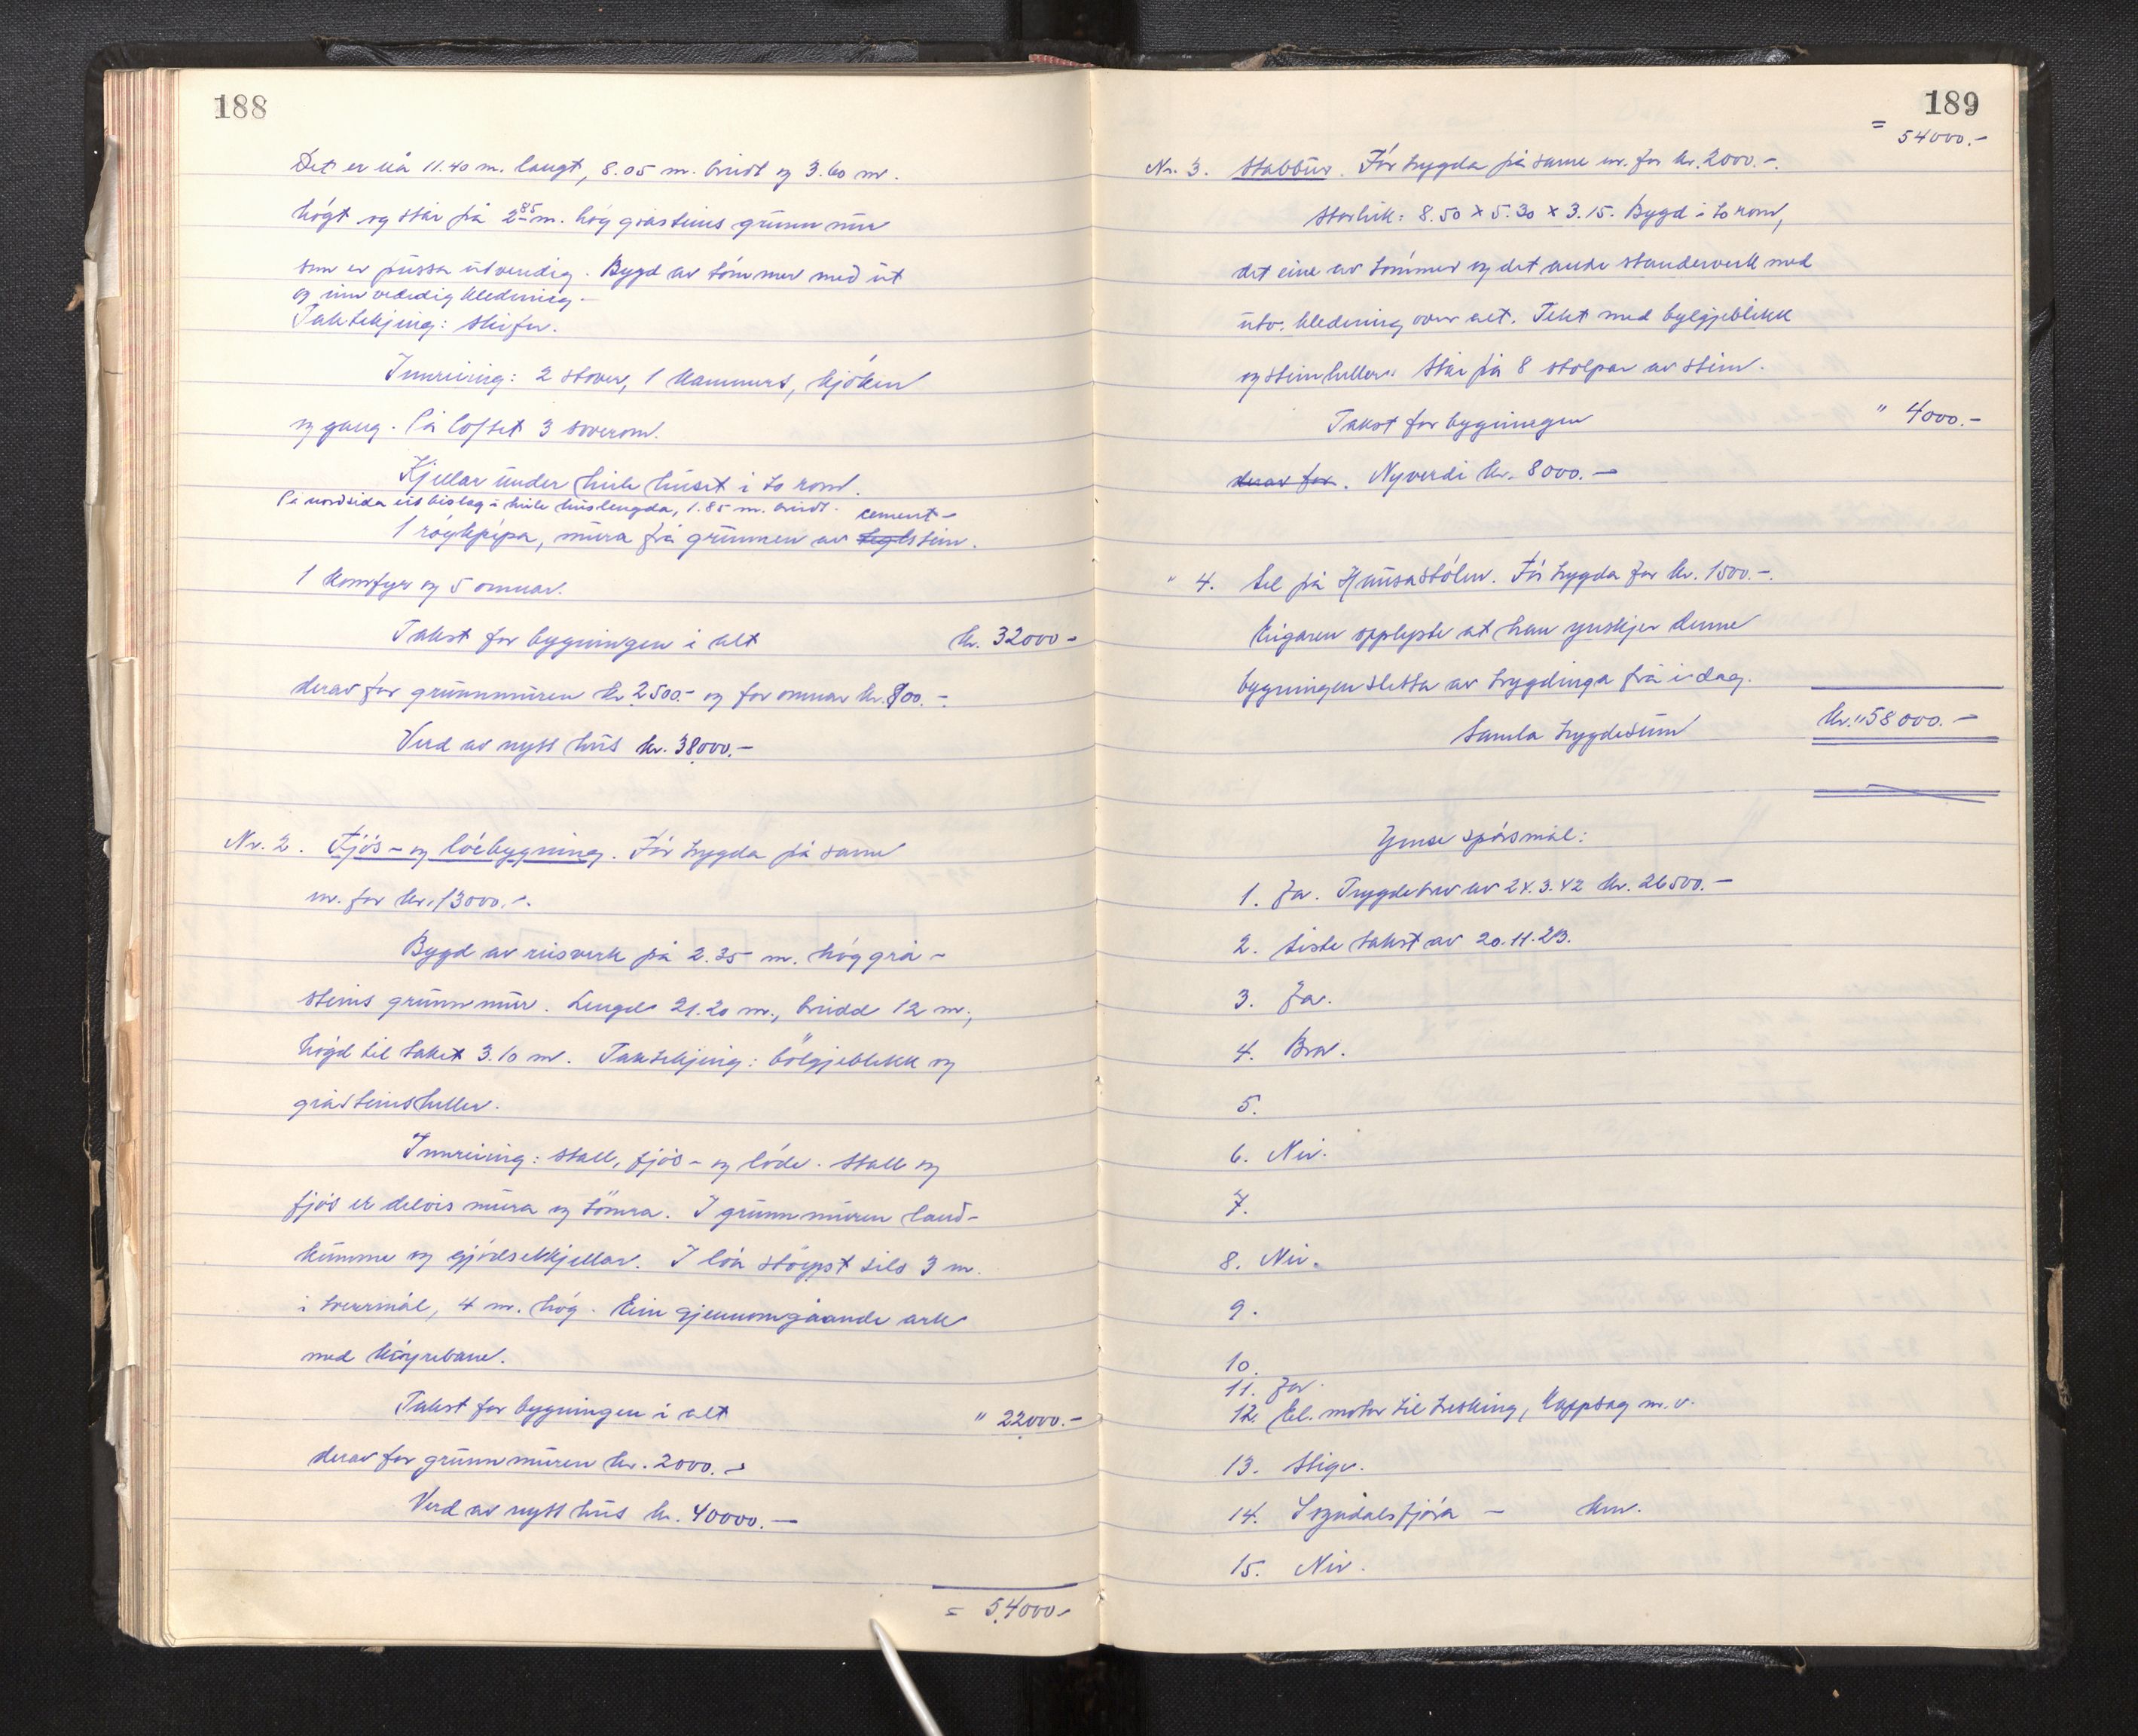 188
Det er nå 11.40 m. langt, 8.05 m. breidt og 3.60 m.
högt og står på 2.85 m. hög gråsteins grunnmur
som er pussa utvendig. Bygd av tömmer med ut
og innvendig kledning.
Taktekjing: skifer.
Innreiing: 2 stover, 1 kammers, kjöken
og gang. På loftet 3 soverom.
Kjellar under heile huset i to rom.
På nordsida eit bislag i heile huslengda, 1.85 m. breidt.
1 röykpipa, mura frå grunnen av cement-
stein.
1 komfyr og 5 omnar.
Takst for bygningen i alt kr. 32000-
derav for grunnmuren kr. 2500.- og for omnar kr. 800.-
Verd av nytt hus kr. 38000.-
Nr. 2. Fjös- og löebygning. För trygda på same
nr. for kr. 13000.-.
Bygd av reisverk på 2.35 m. hög grå-
steins grunnmur. Lengde 21.20 m., breidd 12 m.,
högd til taket 3.10 m. Taktekjing: bölgjeblekk og
gråsteinsheller.
Innreiing: Stall, fjös- og löde. Stall og
fjös er delvis mura og tömra. I grunnmuren land-
kumme og gjödselkjellar. I löa stöypt silo 3 m.
i tverrmål, 4 m. hög. Ein gjennomgåande ark
med köyrebane.
Takst for bygningen i alt " 22000.-
derav for grunnmuren kr. 2000.-
Verd av nytt hus kr. 40000.-
= 54000-
189
= 54000.-
Nr. 3. Stabbur. För trygda på same nr. for kr. 2000.-.
Storleik: 8.50 x 5.30 x 3.15. Bygd i to rom,
det eine av tömmer og det andre standerverk med
utv. kledning over alt. Tekt med bylgjeblikk
og steinheller. Står på 8 stolpar av stein.
Takst for bygningen " 4000.-
derav for. Nyverdi kr. 8000.-
" 4. Sel på Hunsastölen. För trygda for kr. 1500.-.
Eigaren opplyste at han ynskjer denne
bygningen sletta av trygdinga frå i dag.
Samla trygdesum kr. 58000.-
Ymse spörsmål:
1. Ja. Trygdebrev av 24.3.42 kr. 26500.-
2. Siste takst av 20.11.23.
3. Ja.
4. Bra.
5.
6. Nei.
7.
8. Nei.
9.
10.
11. Ja.
12. El. motor til tresking, kappsag m. v.
13. Stige.
14. Sogndalsfjöra - km.
15. Nei.